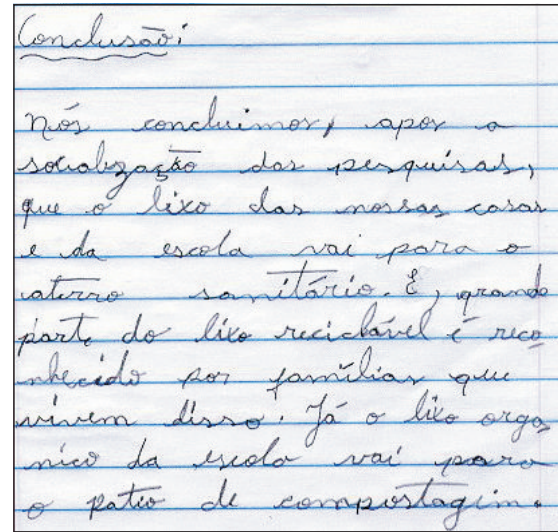 Conclusão:
Nós concluimos, apos a
socialização das pesquisas,
que o lixo das nossas casas
e da escola vai para o
aterro sanitário. E, grande
parte do lixo reciclável é reco
nhecido por famílias que
vivem disso. Já o lixo orgâ
nico da escola vai para
o patio de compostagem.